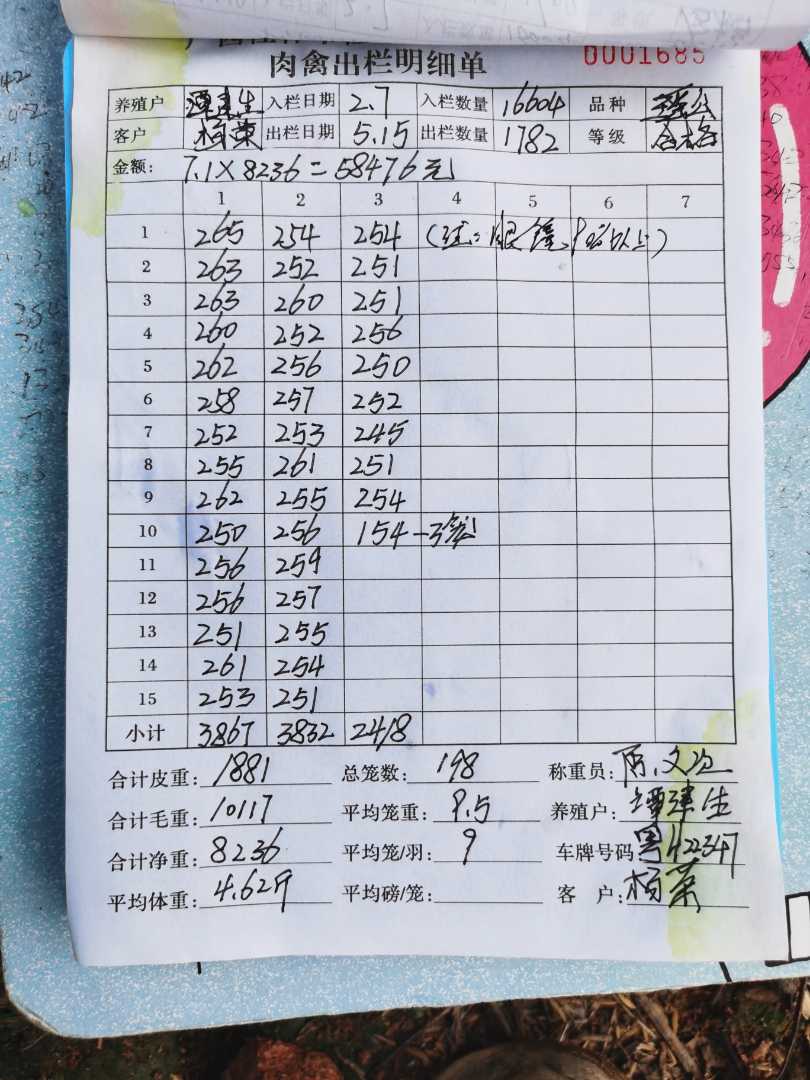 0001685
肉禽出栏明细单
养殖户 谭建生 入栏日期 2.7 入栏数量 16604 品种
客户 杨荣 出栏日期 5.15 出栏数量 1782 等级 合格
金额: 7.1×8236=58476元
1 2 3 4 5 6 7
1 265 254 254
2 263 252 251
3 263 260 251
4 260 252 256
5 262 256 250
6 258 257 252
7 252 253 245
8 255 261 251
9 262 255 254
10 250 256 154
11 256 259
12 256 257
13 251 255
14 261 254
15 253 251
小计 3867 3832 2418
合计皮重: 1881 总笼数: 198 称重员:
合计毛重: 10117 平均笼重: 9.5 养殖户: 谭建生
合计净重: 8236 平均笼/羽: 9 车牌号码
平均体重: 4.62斤 平均磅/笼: 客 户: 杨荣